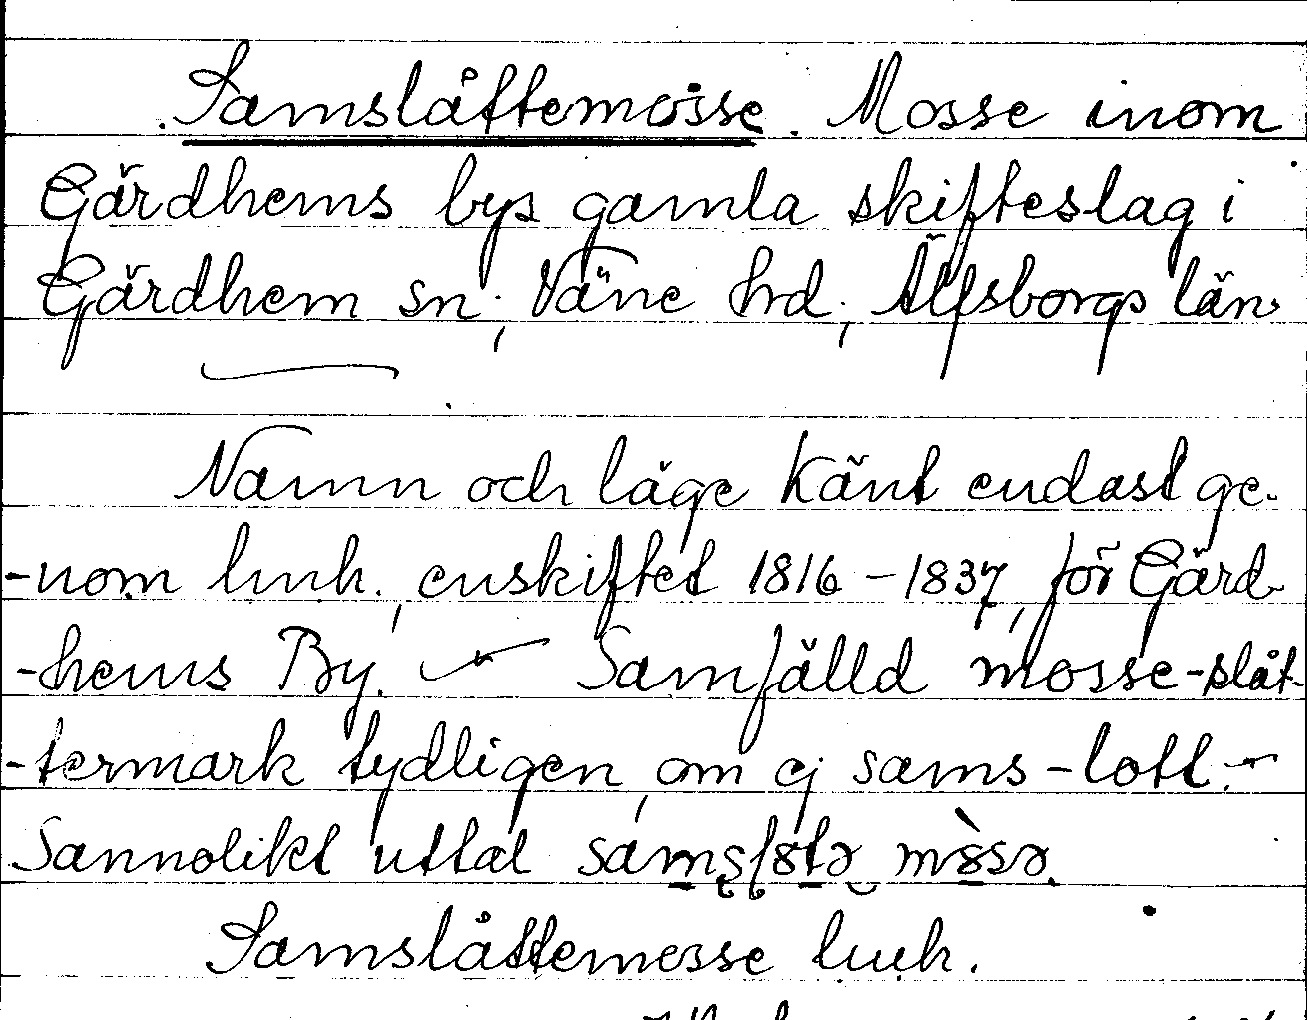 Samslåttemosse. Mosse inom
Gärdhems bys gamla skifteslag i
Gärdhem sn, Väne hd, Älfsborgs län.
Namn och läge känt endast ge-
-nom lmh., enskiftet 1816-1837, för Gärd-
-hems By. - Samfälld mosse-slåt-
-termark tydligen, om ej sams-lott. -
Sannolikt uttal
Samslåttemosse lmh.